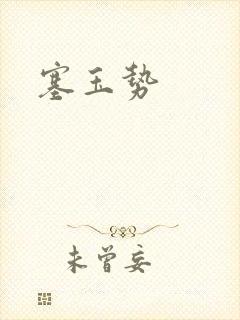 塞玉势
未曾妄